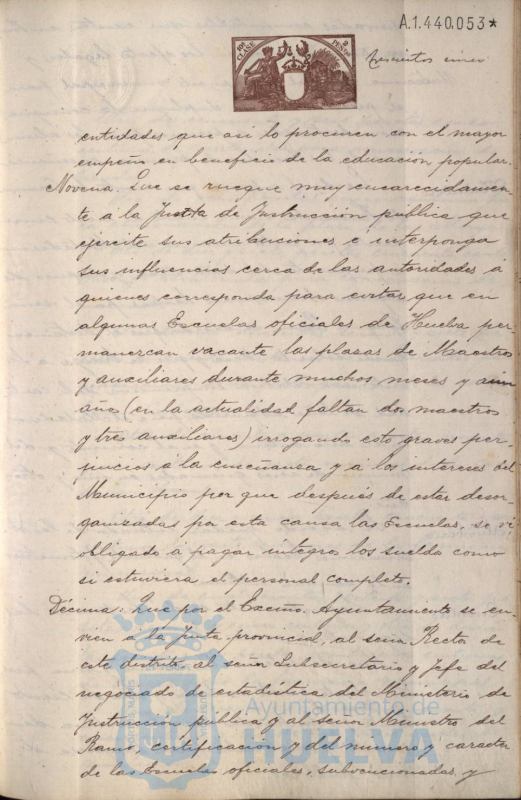 A.1.440.053*
10ª CLASE
2 PESETAS
trescientos cinco
entidades que asi lo procuren con el mayor
empeño en beneficio de la educación popular.
Novena. Que se ruegue muy encarecidamen-
te á la Junta de Instrucción pública que
ejercite sus atribuciones e interponga
sus influencias cerca de las autoridades á
quienes corresponda para evitar que en
algunas Escuelas oficiales de Huelva per-
manezcan vacante las plazas de Maestros
y auxiliares durante muchos meses y aun
años (en la actualidad faltan dos maestros
y tres auxiliares) irrogando esto graves per-
juicios á la enseñanza y á los intereses del
Municipio por que después de estar desor-
ganizadas por esta causa las Escuelas, se ve
obligado á pagar integros los sueldos como
si estuviera el personal completo.
Décima: Que por el Excmo. Ayuntamiento se en-
vien á la Junta provincial, al señor Rector de
este distrito, al señor Subsecretario y Jefe del
negociado de estadística del Ministerio de
Instrucción publica y al señor Ministro del
Ramo, certificacion y del numero y caracter
de las Escuelas oficiales, subvencionadas y
Ayuntamiento de
HUELVA